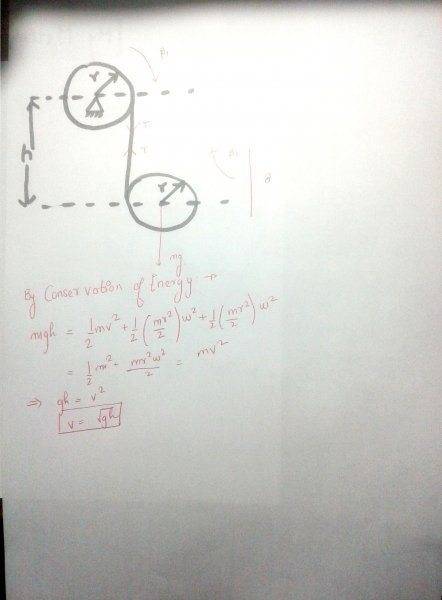 r
β₁
h
T
T
r
β₂
a
mg
By Conservation of Energy →
mgh = 1/2 mv² + 1/2 (mr²/2) ω² + 1/2 (mr²/2) ω²
= 1/2 mv² + mr²ω²/2 = mv²
⇒ gh = v²
v = √gh